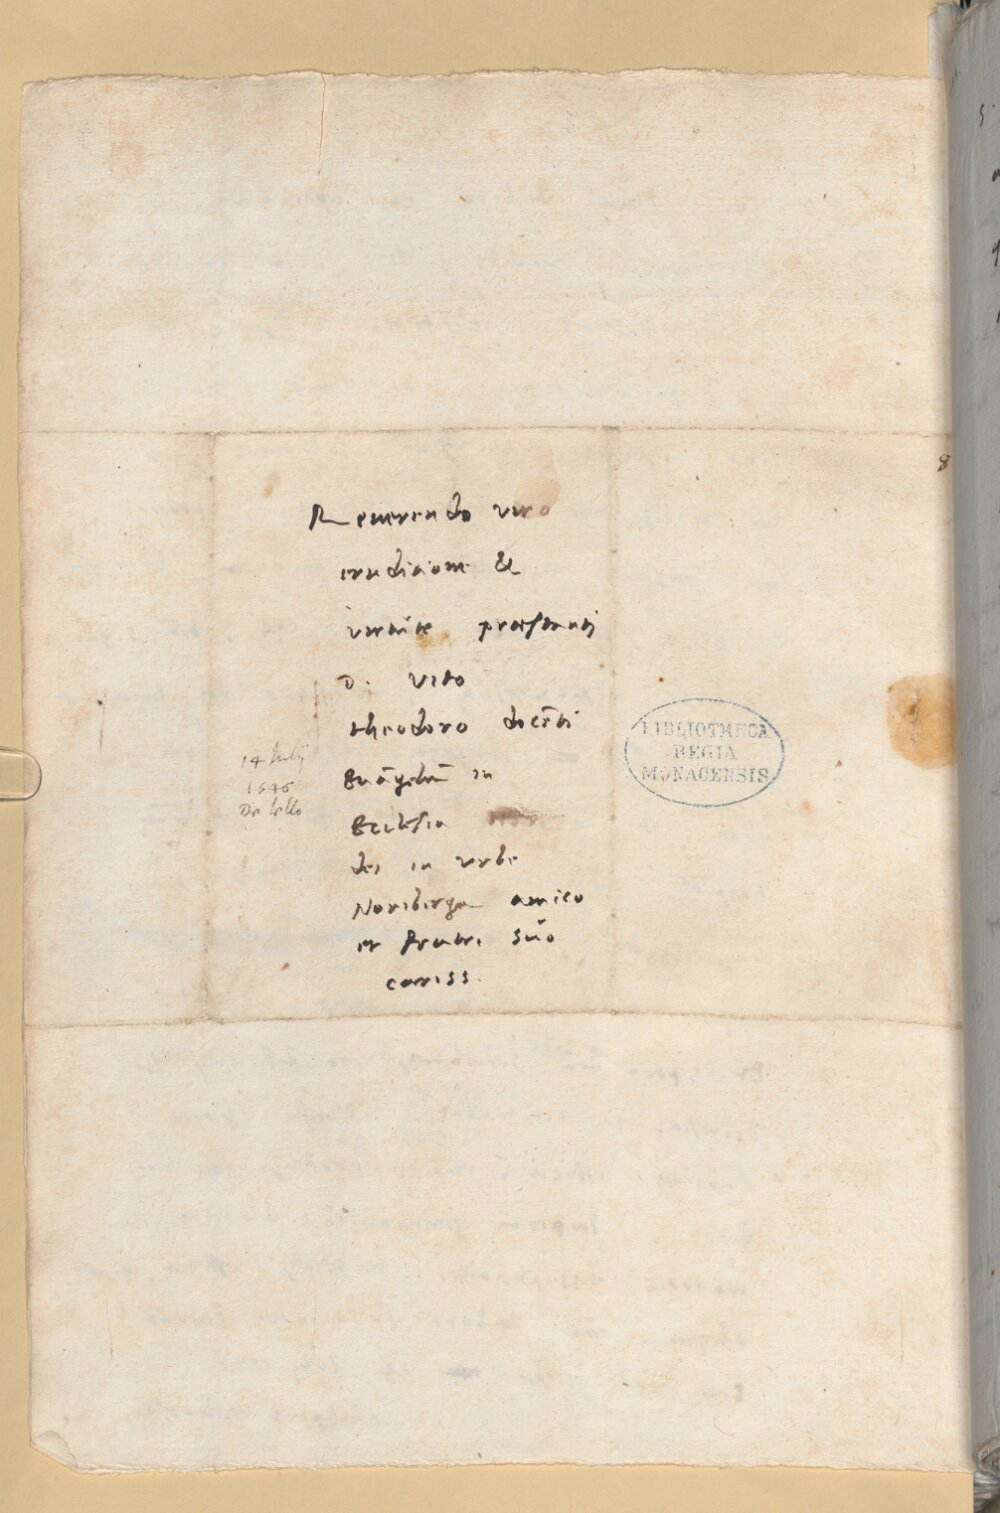 Reverendo viro
eruditione &
virtute præstanti
D. Vito
theodoro docēti
Euāgeliū in
Ecclesia
dei in urbe
Noriberga amico
et fratri suo
cariss.
14 Julij
1546
De bello
BIBLIOTHECA
REGIA
MONACENSIS
8